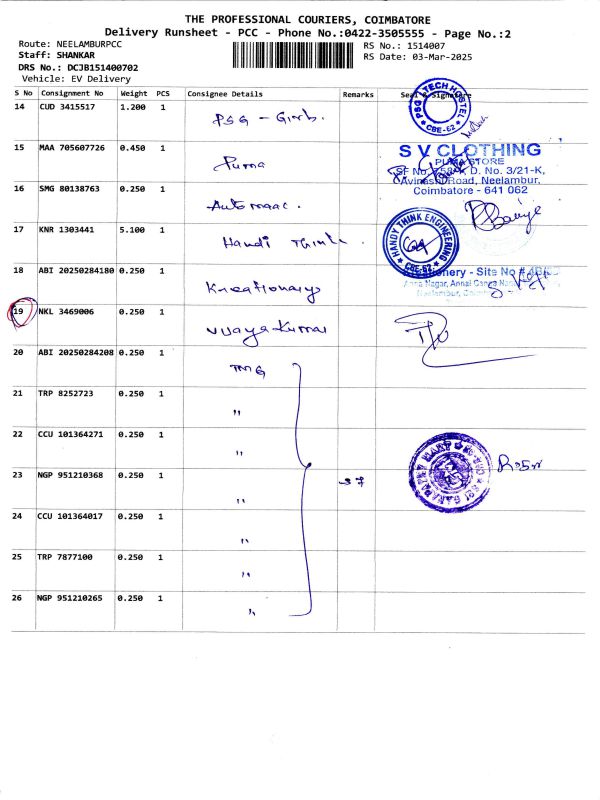 THE PROFESSIONAL COURIERS, COIMBATORE
Delivery Runsheet - PCC - Phone No.:0422-3505555 - Page No.:2
Route: NEELAMBURPCC
RS No.: 1514007
Staff: SHANKAR
RS Date: 03-Mar-2025
DRS No.: DCJB151400702
Vehicle: EV Delivery
S No Consignment No Weight PCS Consignee Details Remarks Seal & Signature
14 CUD 3415517 1.200 1
PSG TECH HOSTEL
CBE-62
15 MAA 705607726 0.450 1 Puma
S V CLOTHING
PUMA STORE
SF No. D. No. 3/21-K,
Avinashi Road, Neelambur,
Coimbatore - 641 062
16 SMG 80138763 0.250 1
17 KNR 1303441 5.100 1 Handi Think
HANDY THINK ENGINEERING
CBE-62
18 ABI 20250284180 0.250 1
Site No
19 NKL 3469006 0.250 1 Vijaya Kumar
20 ABI 20250284208 0.250 1 TMG
21 TRP 8252723 0.250 1 "
22 CCU 101364271 0.250 1 "
23 NGP 951210368 0.250 1 "
24 CCU 101364017 0.250 1 "
25 TRP 7877100 0.250 1 "
26 NGP 951210265 0.250 1 "